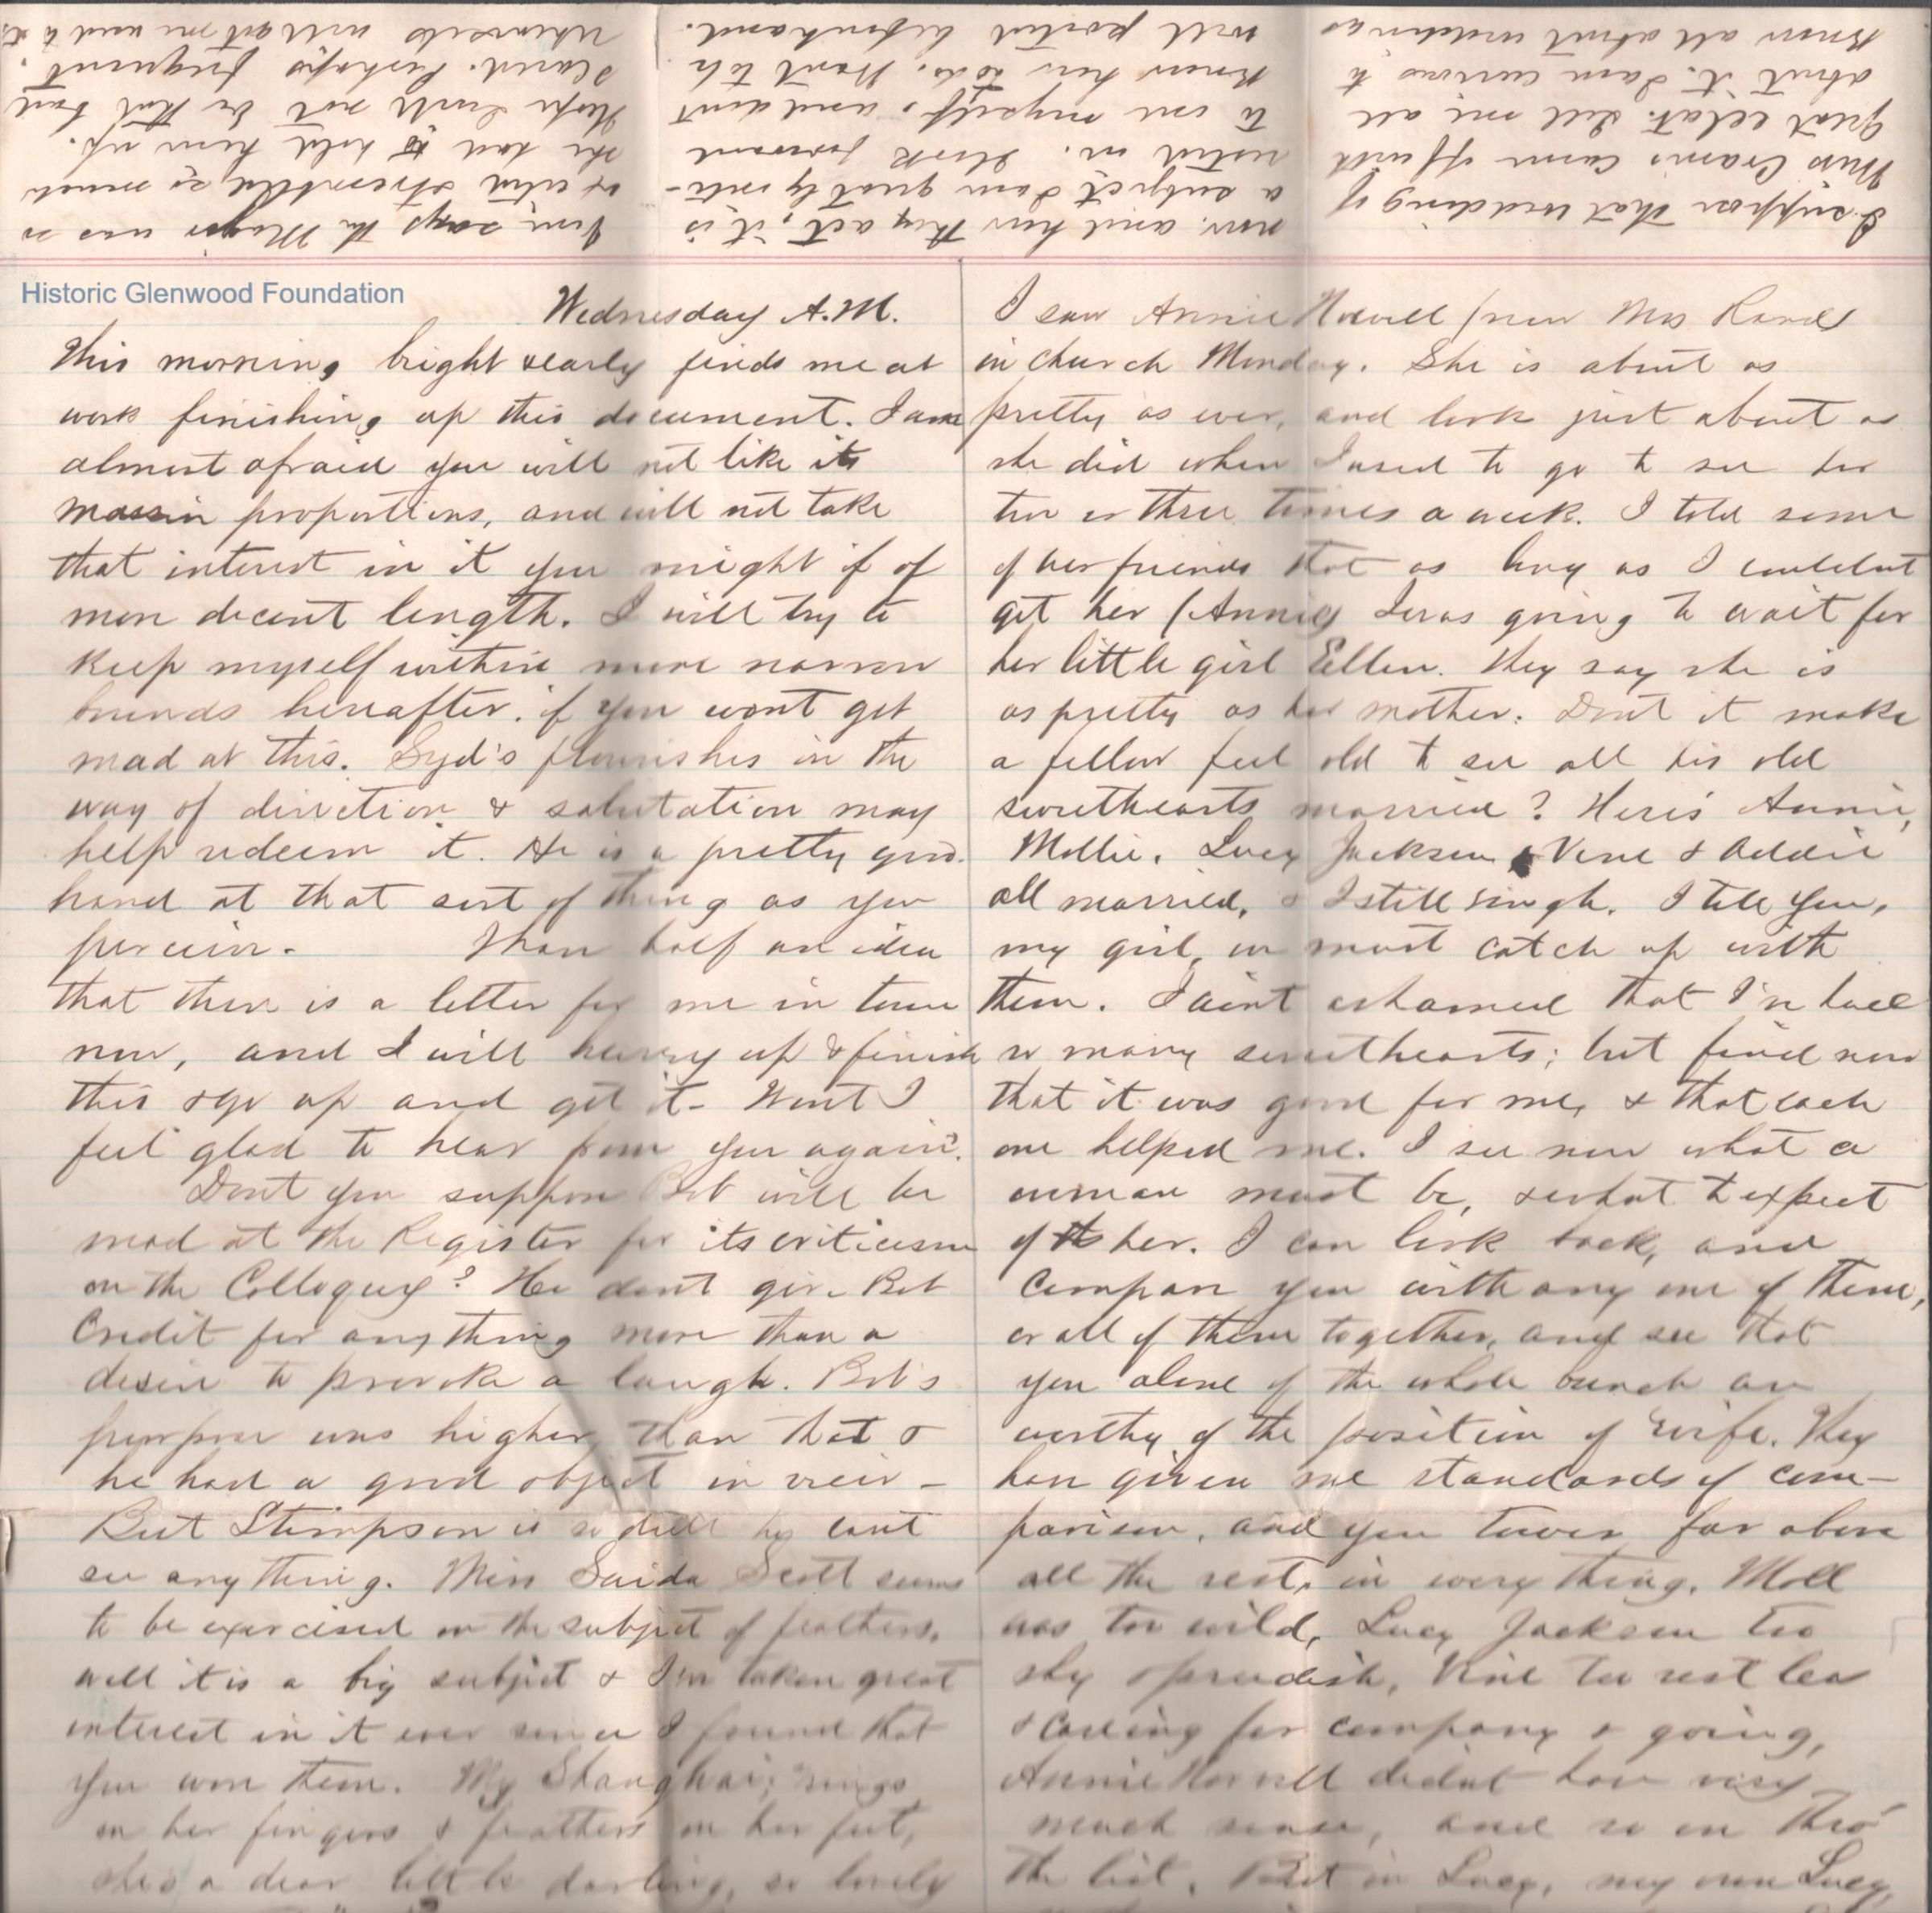 I suppose that wedding of
Miss Cram's came off with
great eclat. Tell me all
about it. I am curious to
know all about weddings
now. and how they act, it is
a subject I am greatly inter-
ested in. Look forward
to one myself, and don't
know how to do. Want to be
well posted beforehand.
Jim says the Major was so
excited & trembled so much
she had to hold him up.
Hope I will not be that bad
scared. Perhaps frequent
rehearsals will get me used to it.
Historic Glenwood Foundation
Wednesday A.M.
This morning bright & early finds me at
work finishing up this document. I am
almost afraid you will not like its
massive proportions, and will not take
that interest in it you might if of
more decent length. I will try to
keep myself within more narrow
bounds hereafter, if you wont get
mad at this. Syd's flourishes in the
way of direction & salutation may
help redeem it. He is a pretty good
hand at that sort of thing as you
perceive. I have half an idea
that there is a letter for me in town
now, and I will hurry up & finish
this & go up and get it - Wont I
feel glad to hear from you again?
Dont you suppose Bob will be
mad at the Register for its criticism
on the Colloquy? He dont give Bob
Credit for anything more than a
desire to provoke a laugh. Bob's
purpose was higher than that &
he had a good object in view -
But Stimpson is so dull he cant
see anything. Miss Saida Scott seems
to be exercised on the subject of feathers.
well it is a big subject & I've taken great
interest in it ever since I found that
you won them. My Shanghai; "rings
on her fingers & feathers on her feet,
she's a dear little darling, so lovely
I saw Annie Norvell (now Mrs Rand)
in church Monday. She is about as
pretty as ever, and looks just about as
she did when I used to go to see her
two or three times a week. I told some
of her friends that as long as I couldnt
get her (Annie) I was going to wait for
her little girl Ellen. They say she is
as pretty as her mother. Dont it make
a fellow feel old to see all his old
sweethearts married? Here's Annie,
Mollie, Lucy Jackson, Vine & Addie
all married, & I still single. I tell you,
my girl, we must catch up with
them. I aint ashamed that I've had
so many sweethearts; but find now
that it was good for me, & that each
one helped me. I see now what a
woman must be, & what to expect
of her. I can look back, and
compare you with any one of them,
or all of them together, and see that
you alone of the whole bunch are
worthy of the position of wife. They
have given me standards of com-
parison, and you tower far above
all the rest, in every thing. Moll
was too wild, Lucy Jackson too
shy & prudish, Vine too restless
& caring for company & going,
Annie Norvell didnt have very
much sense, and so on thro'
the list. But in Lucy, my own Lucy,